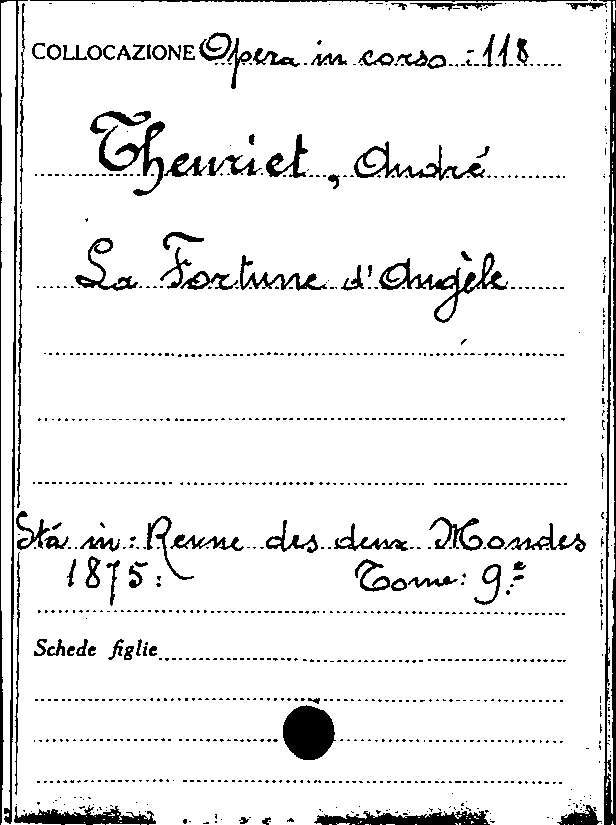 COLLOCAZIONE Opera in corso : 118
Theuriet, André
La Fortune d'Angèle
Stà in: Revue des deux Mondes
1875: Tome: 9.º
Schede figlie